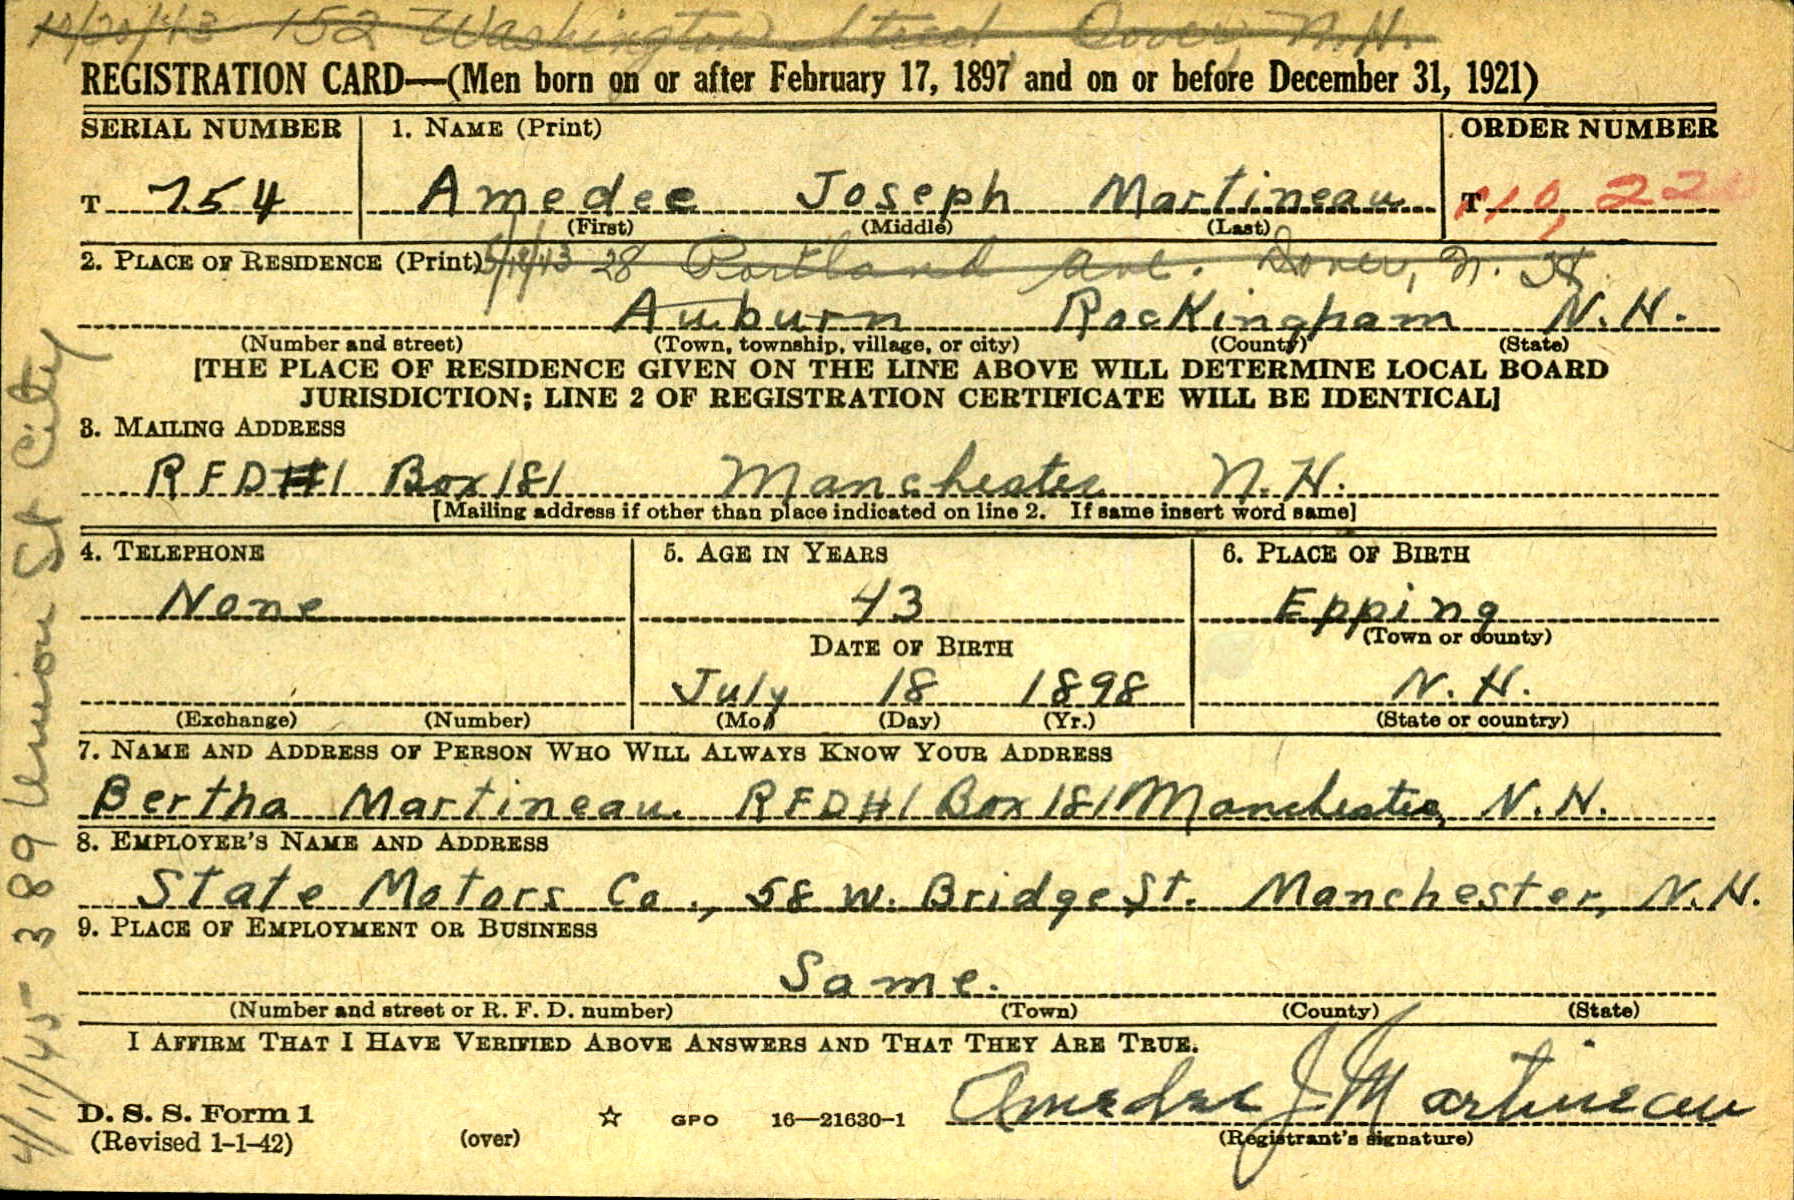 152 Washington Street, Dover, N.H.
REGISTRATION CARD—(Men born on or after February 17, 1897 and on or before December 31, 1921)
SERIAL NUMBER 1. NAME (Print) ORDER NUMBER
T 754 Amedee Joseph Martineau T
(First) (Middle) (Last)
2. PLACE OF RESIDENCE (Print) 28 Portland Ave. Dover, N. H.
Auburn Rockingham N.H.
(Number and street) (Town, township, village, or city) (County) (State)
[THE PLACE OF RESIDENCE GIVEN ON THE LINE ABOVE WILL DETERMINE LOCAL BOARD
JURISDICTION; LINE 2 OF REGISTRATION CERTIFICATE WILL BE IDENTICAL]
3. MAILING ADDRESS
RFD#1 Box 181 Manchester N.H.
[Mailing address if other than place indicated on line 2. If same insert word same]
4. TELEPHONE 5. AGE IN YEARS 6. PLACE OF BIRTH
None 43 Epping
(Town or county)
DATE OF BIRTH
July 18 1898 N.H.
(Exchange) (Number) (Mo.) (Day) (Yr.) (State or country)
7. NAME AND ADDRESS OF PERSON WHO WILL ALWAYS KNOW YOUR ADDRESS
Bertha Martineau. RFD#1 Box 181 Manchester, N.H.
8. EMPLOYER'S NAME AND ADDRESS
State Motors Co., 58 W. Bridge St. Manchester, N.H.
9. PLACE OF EMPLOYMENT OR BUSINESS
Same.
(Number and street or R. F. D. number) (Town) (County) (State)
I AFFIRM THAT I HAVE VERIFIED ABOVE ANSWERS AND THAT THEY ARE TRUE.
Amedee J Martineau
D. S. S. Form 1 ☆ GPO 16—21630-1
(Revised 1-1-42) (over) (Registrant's signature)
4/11/45- 389 Union St City